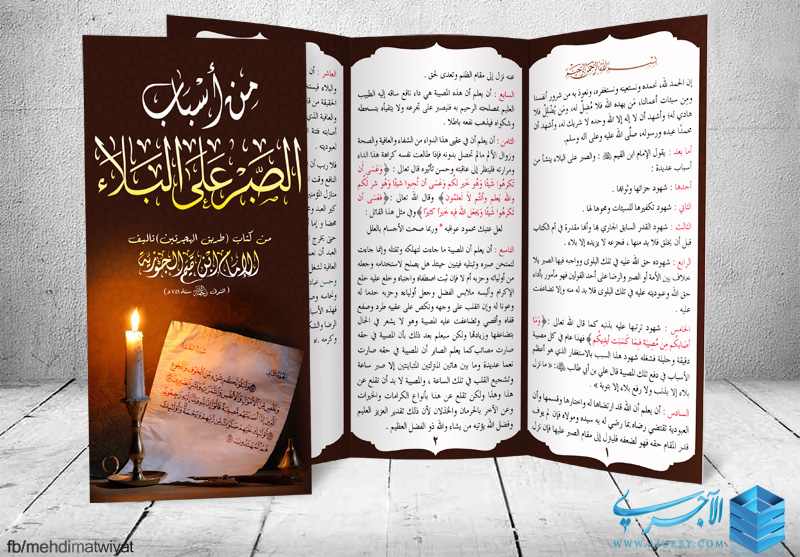 من أسباب
الصبر على البلاء
من كتاب (طريق الهجرتين) تأليف
الإمام ابن قيم الجوزية
بسم الله الرحمن الرحيم
إن الحمد لله، نحمده ونستعينه ونستغفره، ونعوذ به من شرور أنفسنا
ومن سيئات أعمالنا، مَن يهده الله فلا مُضِلَّ له، ومَن يُضْلِل فلا
هادي له؛ وأشهد أن لا إله إلا الله وحده لا شريك له، وأشهد أن
محمدًا عبده ورسوله، صلَّى الله عليه وعلى آله وسلم.
أما بعد : يقول الإمام ابن القيم : والصبر على البلاء ينشأ من
أسباب عديدة :
أحدها : شهود جزائها وثوابها .
الثاني : شهود تكفيرها للسيئات ومحوها لها .
الثالث : شهود القدر السابق الجاري بها وأنها مقدرة في أم الكتاب
قبل أن يخلق فلا بد منها ، فجزعه لا يزيده إلا بلاء .
الرابع : شهوده حق الله عليه في تلك البلوى وواجبه فيها الصبر بلا
خلاف بين الأمة أو الصبر والرضا على أحد القولين فهو مأمور بأداء
حق الله وعبوديته عليه في تلك البلوى فلا بد له منه وإلا تضاعفت
عليه .
الخامس : شهود ترتبها عليه بذنبه كما قال الله تعالى :﴿ وَمَا
أَصَابَكُم مِن مُصِيبَةٍ فَبِمَا كَسَبَت أَيدِيكُم ﴾ فهذا عام في كل مصيبة
دقيقة وجليلة فشغله شهود هذا السبب بالاستغفار الذي هو أعظم
الأسباب في دفع تلك المصيبة قال علي بن أبي طالب : «ما نزل
بلاء إلا بذنب ولا رفع بلاء إلا بتوبة» .
السادس : أن يعلم أن الله قد ارتضاها له واختارها وقسمها وأن
العبودية تقتضي رضاه بما رضي له به سيده ومولاه فإن لم يوف
قدر المقام حقه فهو لضعفه فلينزل إلى مقام الصبر عليها فإن نزل
١
عنه نزل إلى مقام الظلم وتعدى لحق .
السابع : أن يعلم أن هذه المصيبة هي داء نافع ساقه إليه الطبيب
العليم بمصلحته الرحيم به فليصبر على تجرعه ولا يتقيأه بتسخطه
وشكواه فيذهب نفعه باطلا .
الثامن : أن يعلم أن في عقبى هذا الدواء من الشفاء والعافية والصحة
وزوال الألم ما لم تحصل بدونه فإذا طالعت نفسه كراهة هذا الداء
ومرارته فلينظر إلى عاقبته وحسن تأثيره قال تعالى : ﴿ وَعَسَى أَن
تَكرَهُوا شَيئًا وَهُوَ خَير لَكُم وَعَسَى أَن تُحِبوا شَيئًا وَهُوَ شَر لَكُم
وَاللهُ يَعلَم وَأَنتُم لَا تَعلَمُون ﴾ وقال الله تعالى : ﴿ فَعَسَى أَن
تَكرَهُوا شَيئًا وَيَجعَلَ اللهُ فِيهِ خَيرًا كَثِيرًا ﴾ وفي مثل هذا القائل :
لعل عتبك محمود عواقبه * وربما صحت الأجسام بالعلل
التاسع : أن يعلم أن المصيبة ما جاءت لتهلكه وتقتله وإنما جاءت
لتمتحن صبره وتبتليه فيتبين حينئذ هل يصلح لاستخدامه وجعله
من أوليائه وحزبه أم لا فإن ثبت اصطفاه واجتباه وخلع عليه خلع
الإكرام وألبسه ملابس الفضل وجعل أولياءه وحزبه خدما له
وعونا له وإن انقلب على وجهه ونكص على عقبيه طرد وصفع
قفاه وأقصي وتضاعفت عليه المصيبة وهو لا يشعر في الحال
بتضاعفها وزيادتها ولكن سيعلم بعد ذلك بأن المصيبة في حقه
صارت مصائب كما يعلم الصابر أن المصيبة في حقه صارت
نعما عديدة وما بين هاتين المنزلتين المتباينتين إلا صبر ساعة
وتشجيع القلب في تلك الساعة ، والمصيبة لا بد أن تقلع عن
هذا وهذا ولكن تقلع عن هذا بأنواع الكرامات والخيرات
وعن الآخر بالحرمان والخذلان لأن ذلك تقدير العزيز العليم
وفضل الله يؤتيه من يشاء والله ذو الفضل العظيم .
٢
العاشر : أن
الآجري
WWW.AJURRY.COM
fb/mehdimatwiyat